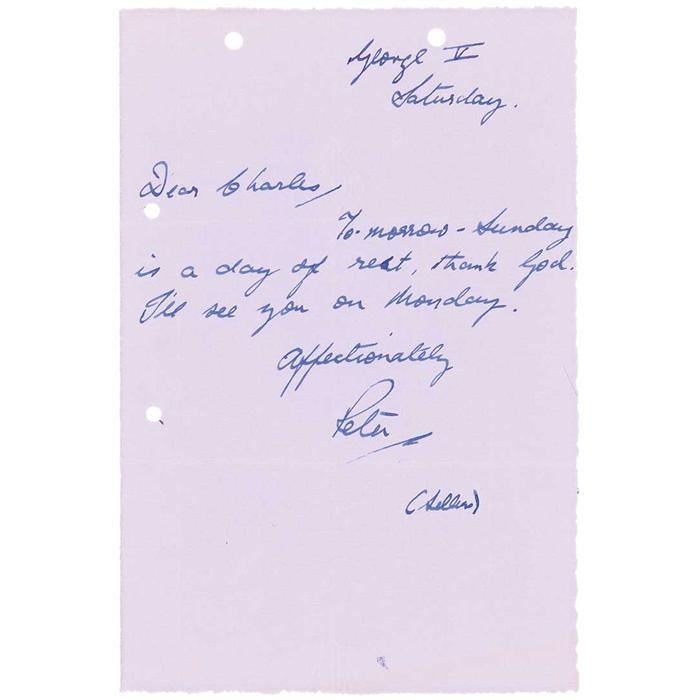 George V
Saturday.
Dear Charles,
To-morrow - Sunday
is a day of rest, thank God.
I'll see you on Monday.
Affectionately
Peter
(Sellers)